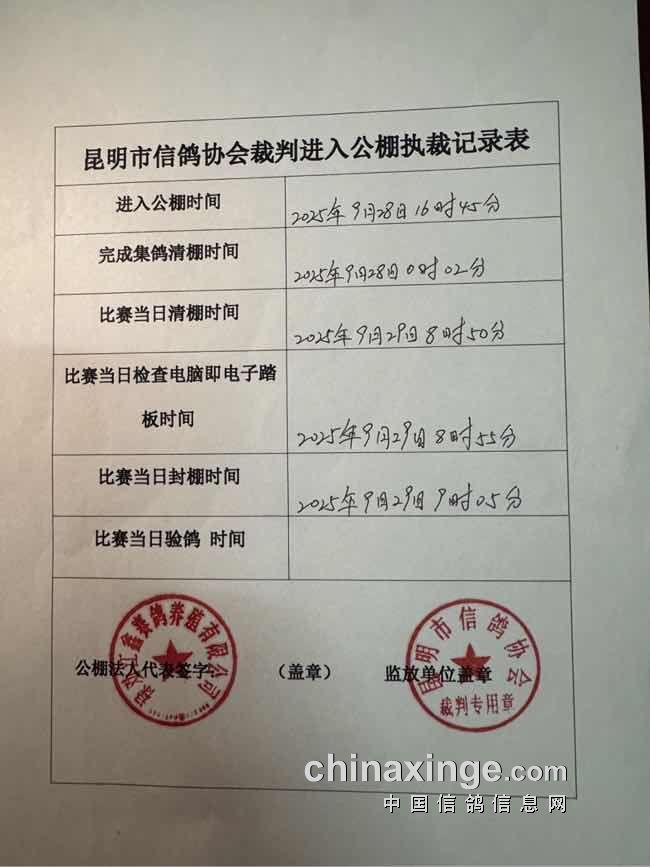 昆明市信鸽协会裁判进入公棚执裁记录表
进入公棚时间
2025年9月28日16时45分
完成集鸽清棚时间
2025年9月28日0时02分
比赛当日清棚时间
2025年9月29日8时50分
比赛当日检查电脑即电子踏
板时间
2025年9月29日8时55分
比赛当日封棚时间
2025年9月29日9时05分
比赛当日验鸽 时间
鑫赛鸽养殖有限公司
昆明市信鸽协会
公棚法人代表签字
（盖章）
监放单位盖章
裁判专用章
chinaxinge.com
中国信鸽信息网